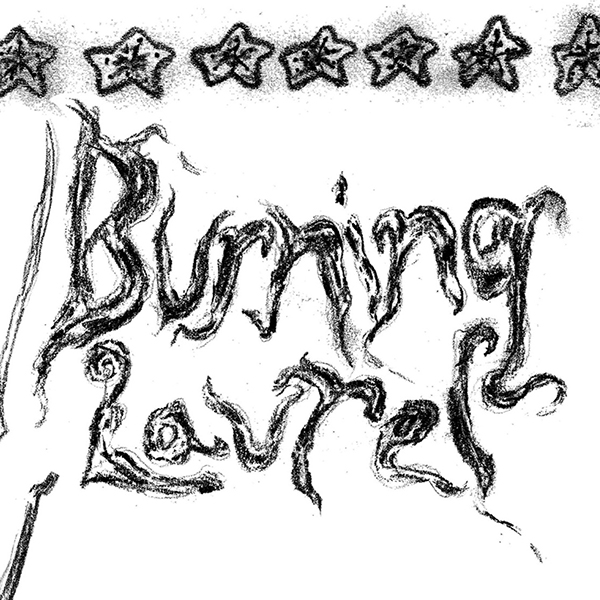 Burning
Laurel